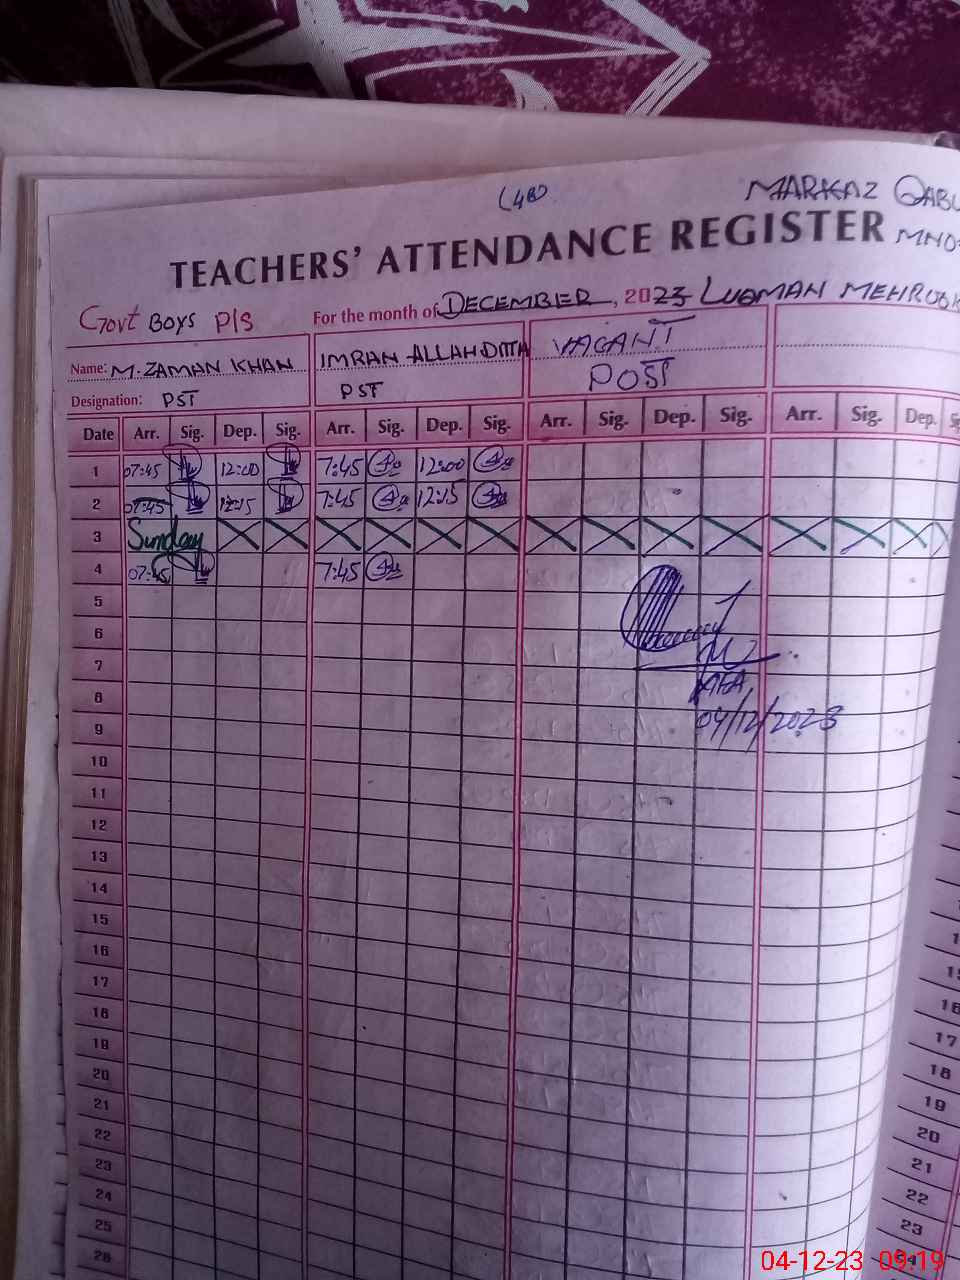 (48)
MARKAZ QABU
TEACHERS' ATTENDANCE REGISTER
Govt BOYS P/S For the month of DECEMBER, 2023 LUQMAN MEHROOK
Name: M. ZAMAN KHAN IMRAN ALLAHDITTA VACANT
Designation: PST PST POST
Date Arr. Sig. Dep. Sig. Arr. Sig. Dep. Sig. Arr. Sig. Dep. Sig. Arr. Sig. Dep.
1 07:45 12:00 7:45 12:00
2 07:45 12:15 7:45 12:15
3 Sunday
4 07:45 7:45
5
6
7
8
9
10
11
12
13
14
15
16
17
18
19
20
21
22
23
24
25
26
AEA
04/12/2023
16
17
18
19
20
21
22
23
04-12-23 09:19